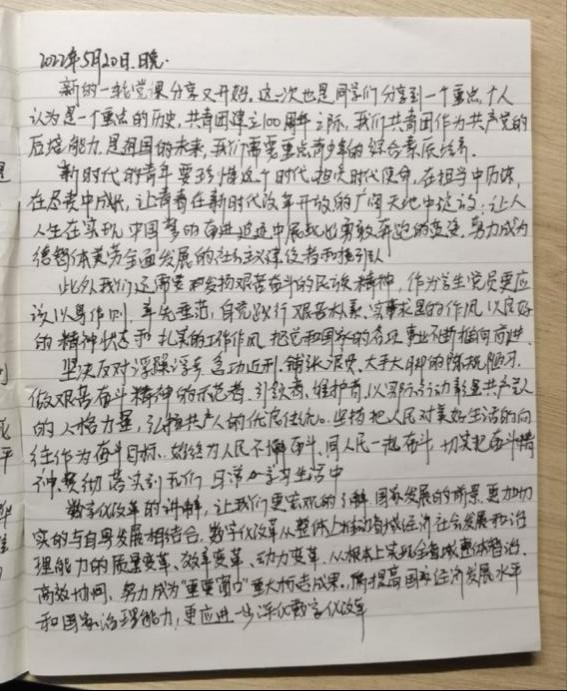 2022年5月20日.晚.
新的一轮党课分享又开始,这一次也是同学们分享到一个重点,个人
认为是一个重点的历史,共青团建立100周年之际,我们共青团作为共产党的
后备能力,是祖国的未来,我们需要重点青少年的综合素质培养.
新时代的青年要珍惜这个时代,担负时代使命,在担当中历练,
在尽责中成长,让青春在新时代改革开放的广阔天地中绽放,让人
人生在实现中国梦的奋进追逐中展现出勇敢奔跑的英姿,努力成为
德智体美劳全面发展的社会主义建设者和接班人
此外我们还需要发扬艰苦奋斗的民族精神,作为学生党员更应
该以身作则,率先垂范,自觉践行艰苦朴素、实事求是的作风,以良好
的精神状态和扎实的工作作风,把党和国家的各项事业不断推向前进.
坚决反对浮躁浮夸、急功近利、铺张浪费、大手大脚的陈规陋习,
做艰苦奋斗精神的示范者、引领者、维护者,以实际行动彰显共产党人
的人格力量,弘扬共产人的优良传统.坚持把人民对美好生活的向
往作为奋斗目标,始终为人民不懈奋斗、同人民一起奋斗,切实把奋斗精
神贯彻落实到我们日常学习生活中
数字化改革的讲解,让我们更宏观的了解国家发展的前景,更加切
实的与自身发展相结合,数字化改革从整体上推动省域经济社会发展和治
理能力的质量变革、效率变革、动力变革,从根本上实现全省域整体智治、
高效协同,努力成为"重要窗口"重大标志成果,需提高国家经济发展水平
和国家治理能力,更应进一步深化数字化改革